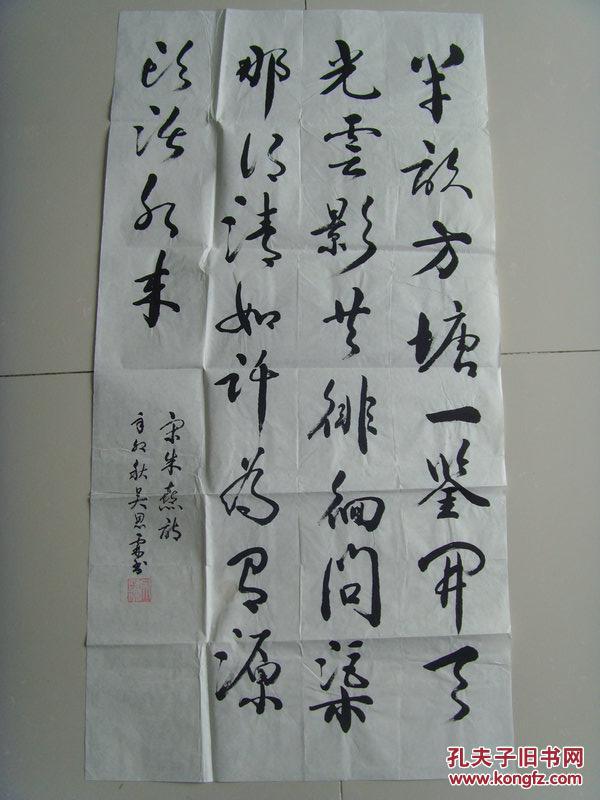 半畝方塘一鉴開天
光雲影共徘徊問渠
那得清如許為有源
頭活水来
宋朱熹詩
辛卯秋吴思書
孔夫子旧书网
www.kongfz.com